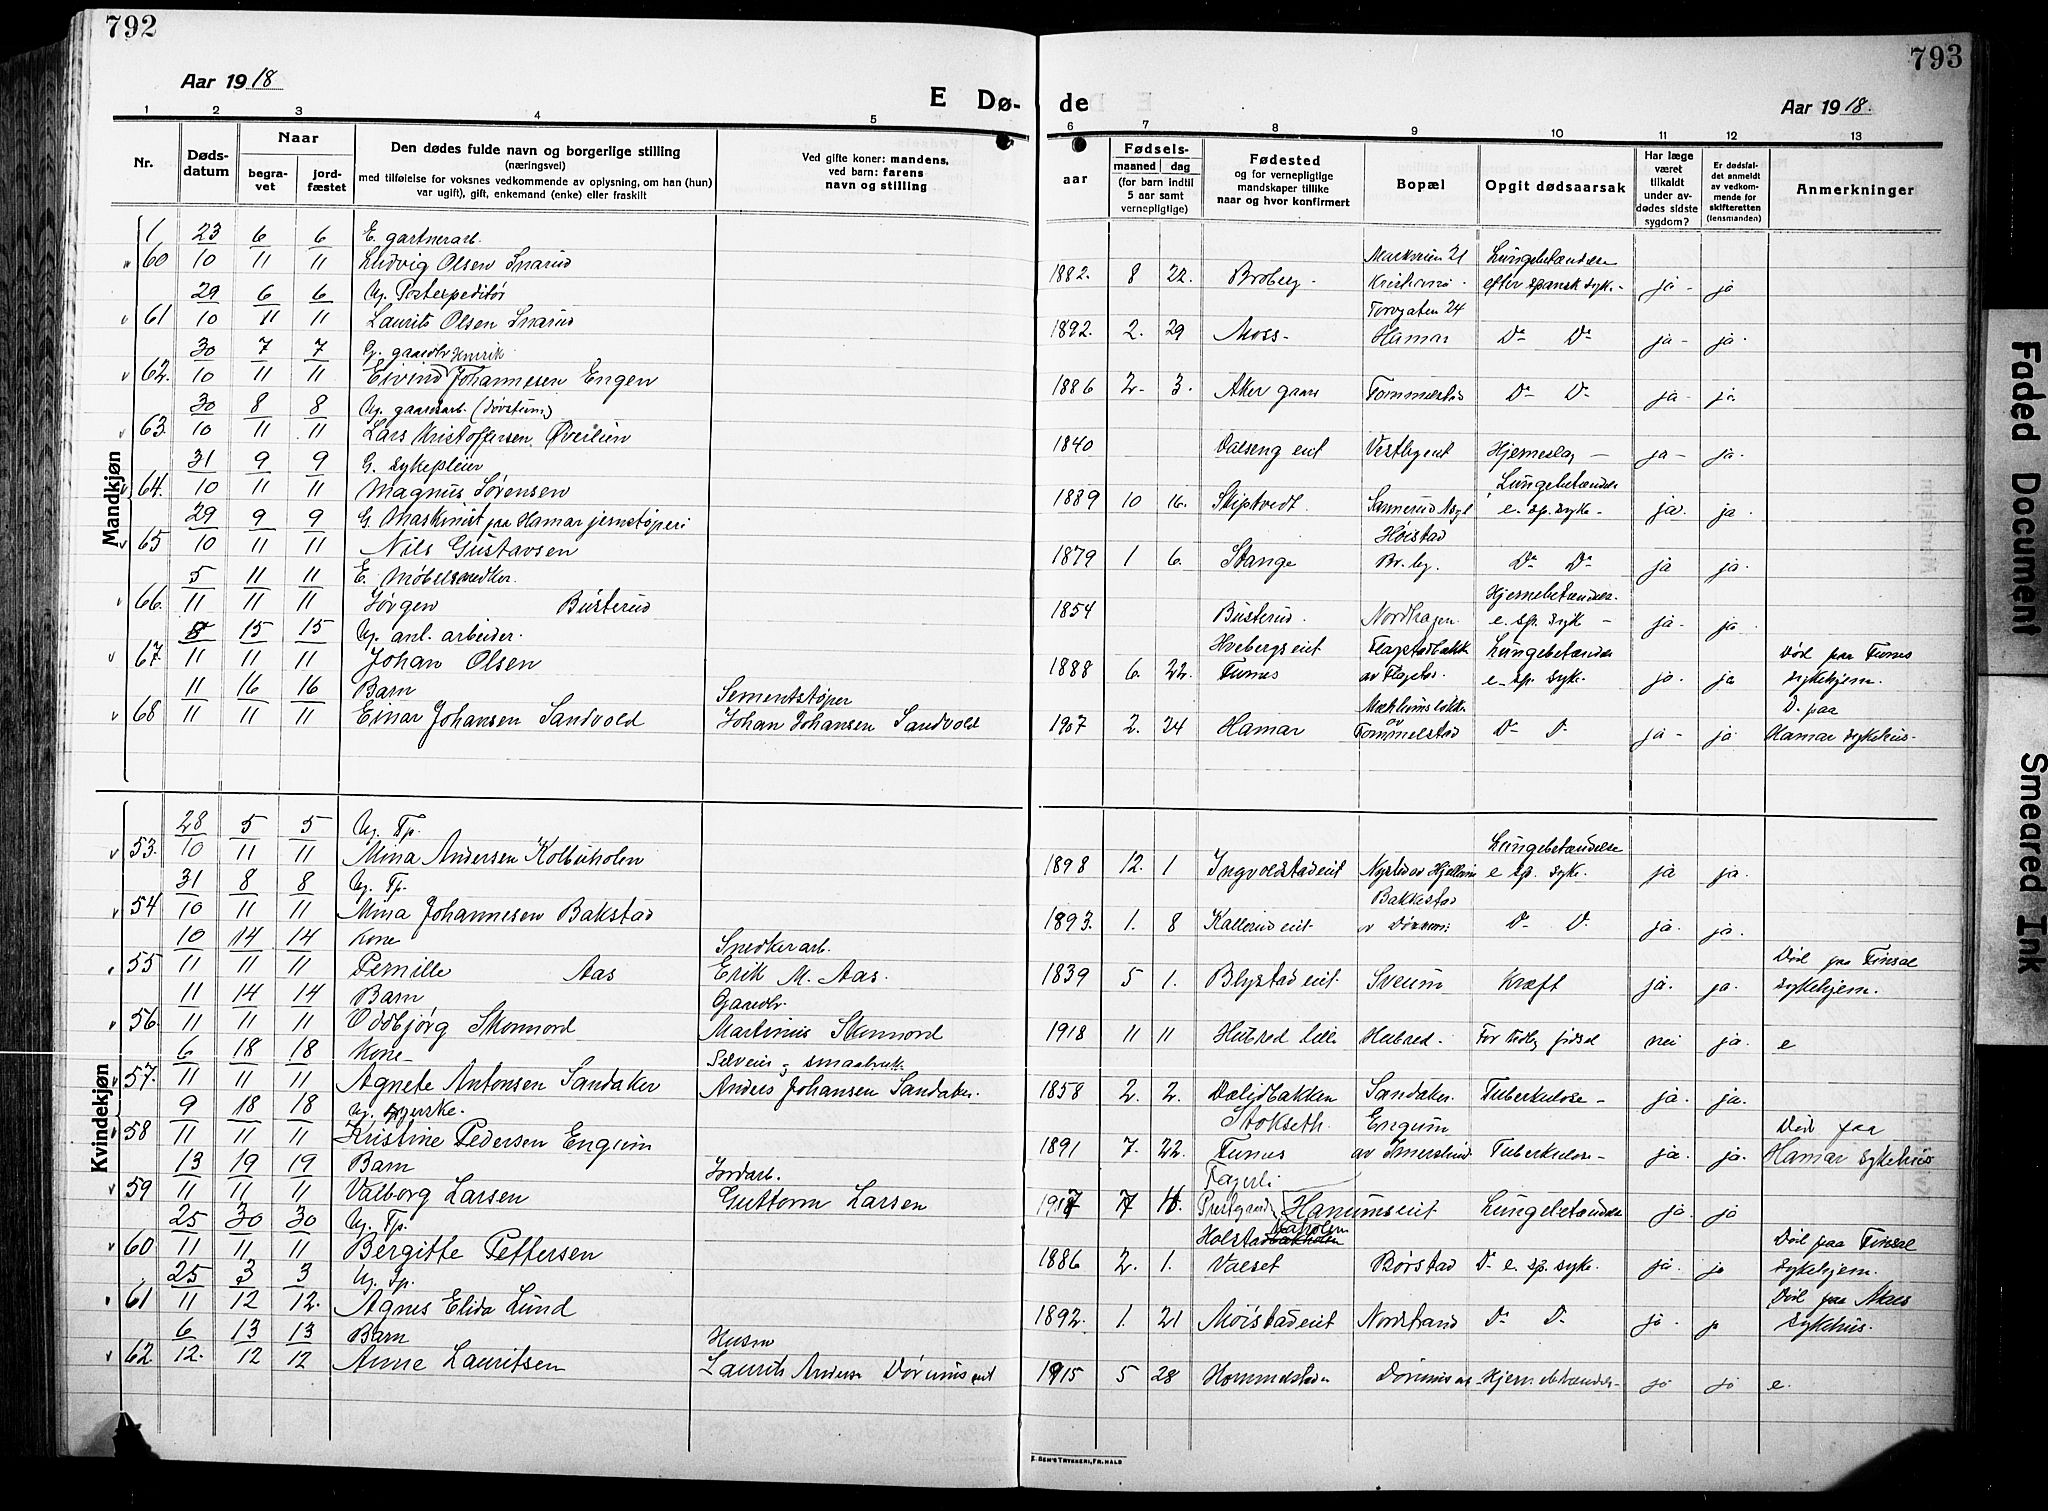 792
793
Aar 1918
E Dø-
de
Aar 1918.
1 2 3 4 5 6 7 8 9 10 11 12 13
Nr.
Dødsdatum
Naar
begravet
jordfæstet
Den dødes fulde navn og borgerlige stilling
(næringsvei)
med tilføielse for voksnes vedkommende av oplysning, om han (hun)
var ugift), gift, enkemand (enke) eller fraskilt
Ved gifte koner: mandens,
ved barn: farens
navn og stilling
aar
Fødsels-
maaned dag
(for barn indtil
5 aar samt
vernepligtige)
Fødested
og for vernepligtige
mandskaper tillike
naar og hvor konfirmert
Bopæl
Opgit dødsaarsak
Har læge
været
tilkaldt
under av-
dødes sidste
sygdom?
Er dødsfal-
det anmeldt
av vedkom-
mende for
skifteretten
(lensmanden)
Anmerkninger
Mandkjøn
1 23 6 6 E. gartnerarb. Lungebetændelse
60 10 11 11 Ludvig Olsen Snarud 1882. 8 22. Broberg - efter spansk syke - ja - ja
29 6 6 Ug. Postexpeditør Torvgaten 24
61 10 11 11 Laurits Olsen Snarud 1892. 2. 29 Moss - Hamar Do Do ja - ja.
30 7 7 G. gaardbr Henrik
62. 10 11 11 Eivind Johannesen Engen 1886 2. 3. Aker gaard Tommelstad Do Do ja - ja
30 8 8 Ug. gaardsarb. (Dövstum)
63. 10 11 11 Lars Kristoffersen Øverlien 1840 Dalseng eiet Hjerneslag - ja - ja.
31 9 9 G. Sykepleier Lungebetændelse
64. 10 11 11 Magnus Sørensen 1889 10 16. Skiptvedt. e. sp. syke - ja. ja
29 9 9 G. Maskinist paa Hamar jernstøperi Høistad
65 10 11 11 Nils Gustavsen 1879 1 6. Stange Br. by. Do Do ja ja.
5 11 11 E. Møbelsnedker. Hjernebetændelse.
66. 11 11 11 Jörgen Busterud 1854 Busterud. Nordhagen. e. sp. syk - ja. ja
8 15 15 Ug. anl. arbeider. Hvebergs eiet Flagstadbakk Lungebetændelse Död paa Furnes
67. 11 11 11 Johan Olsen 1888 6. 22. Furnes e. sp. syke. ja. ja sykehjem.
11 16 16 Barn Sementstøper D. paa
68 11 11 11 Einar Johansen Sandvold Johan Johansen Sandvold 1907 2. 24 Hamar av Tommelstad Do D. ja - ja Hamar sykehus -
Kvindekjøn
28 5 5 Ug. Tp. Lungebetændelse
53. 10 11 11 Mina Andersen Kolbuholen 1898 12. 1 Ingvoldstadeiet Nysted av Hjellum e sp. syke. ja ja.
31 8 8 Ug. Tp. Bakkestad
54 10 11 11 Mina Johannesen Bakstad 1893. 1. 8 Kallerud eiet. Do D. ja. ja.
10 14 14 Kone Snedkerarb. Död paa Finsal
55 11 11 11 Pernille Aas Erik M. Aas. 1839 5 1. Blystad eiet. Sveum Kræft ja. ja. sykehjem.
11 14 14 Barn Gaardbr.
56 11 11 11 Oddbjørg Skonnord Martinius Skonnord 1918 11 11 Hubred lille Hubred. For tidlig fødsel nei ja. e
6 18 18 Kone - Selveier og smaabruk.
57. 11 11 11 Agnete Antonsen Sandaker Anders Johansen Sandaker. 1858 2. 2. Dælidbakken Sandaker. Tuberkulose - ja. ja.
9 18 18 Ug. syerske. Stokseth. Engum Död paa
58 11 11 11 Kristine Pedersen Engum 1891 7. 22. Furnes av Imerslund Tuberkulose - ja. ja. Hamar sykehus
13 19 19 Barn Jordarb. Fagerli
59 11 11 11 Valborg Larsen Guttorm Larsen 1917 Hanumseiet Lungebetændelse ja. ja
25 30 30 Ug. Tp. Död paa Finsal
60 11 11 11 Bergitte Pettersen 1886 2. 1. Vaeset Børstad Do e. sp. syke. ja. ja sykehjem.
25 3 3 Ug. Tp. Död paa Næs
61 11 12 12. Agnes Elida Lund 1892. 1. 21 Møistadeiet Nordstrand Do D. ja. ja sykehus.
6 13 13 Barn Husm
62. 12. 12 12 Anne Lauritsen Laurits Anders Dörumseiet 1915 5 28 Hommelstad Hjernebetændelse - ja ja e.
E. BEN'S TRYKKERI, FR. HALD
Faded Document
Smeared Ink